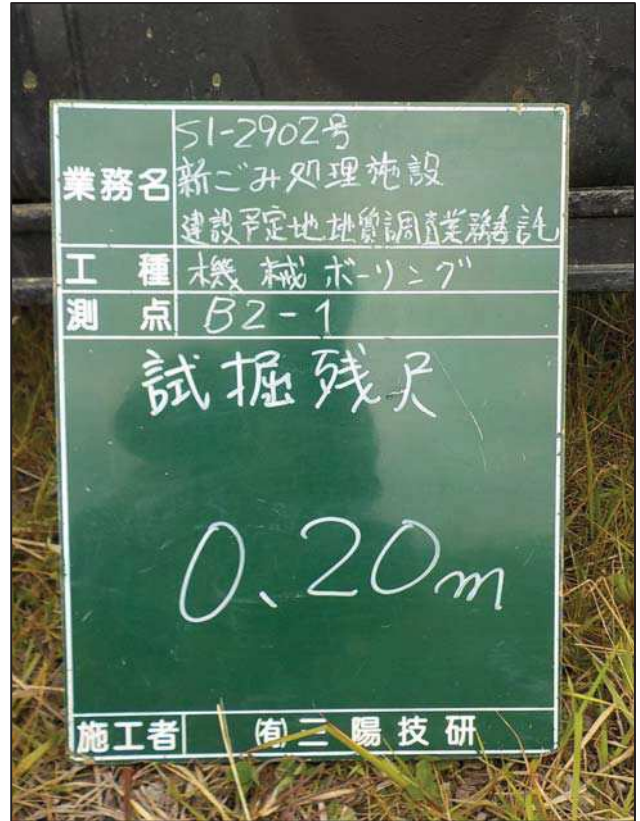 業務名 S1-2902号
新ごみ処理施設
建設予定地地質調査業務委託
工種 機械ボーリング
測点 B2-1
試掘残尺
0.20m
施工者 (有)二陽技研